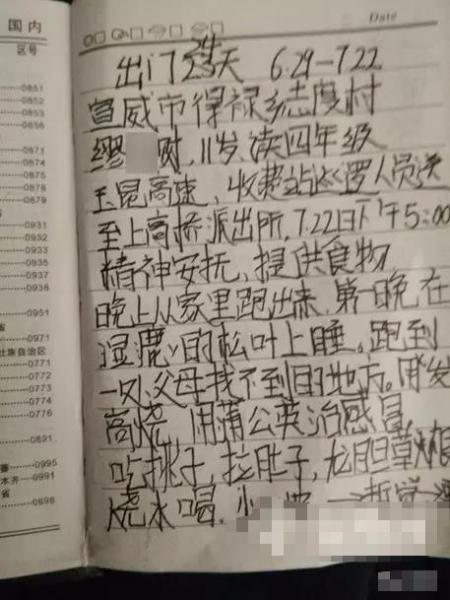 国内
区号
Date
出门23天 6.29-7.22
宣威市得禄乡志度村
缪 财,11岁,读四年级
玉昆高速,收费站巡逻人员送
至上高桥派出所,7.22日下午5:00
精神安抚,提供食物
晚上从家里跑出来,第一晚在
湿鹿鹿的松叶上睡。跑到
一处父母找不到的地方。用发
高烧,用蒲公英治感冒,
吃桃子,拉肚子,龙胆草根
烧水喝.
0851
0852
0853
0856
0871
0874
0875
0876
0878
0879
0931
0932
0933
0934
0935
0937
0938
0951
0971
壮族自治区
0771
0772
0773
0774
0776
0891
0995
木齐 0991
0898